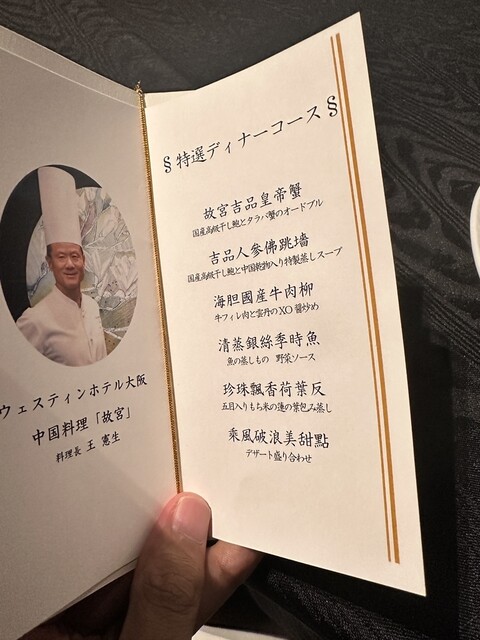 ウェスティンホテル大阪
中国料理「故宮」
料理長 王 憲生
§ 特選ディナーコース §
故宮吉品皇帝蟹
国産高級干し鮑とタラバ蟹のオードブル
吉品人参佛跳墻
国産高級干し鮑と中国乾物入り特製蒸しスープ
海胆國産牛肉柳
牛フィレ肉と雲丹のXO醤炒め
清蒸銀絲季時魚
魚の蒸しもの 野菜ソース
珍珠飄香荷葉反
五目入りもち米の蓮の葉包み蒸し
乘風破浪美甜點
デザート盛り合わせ